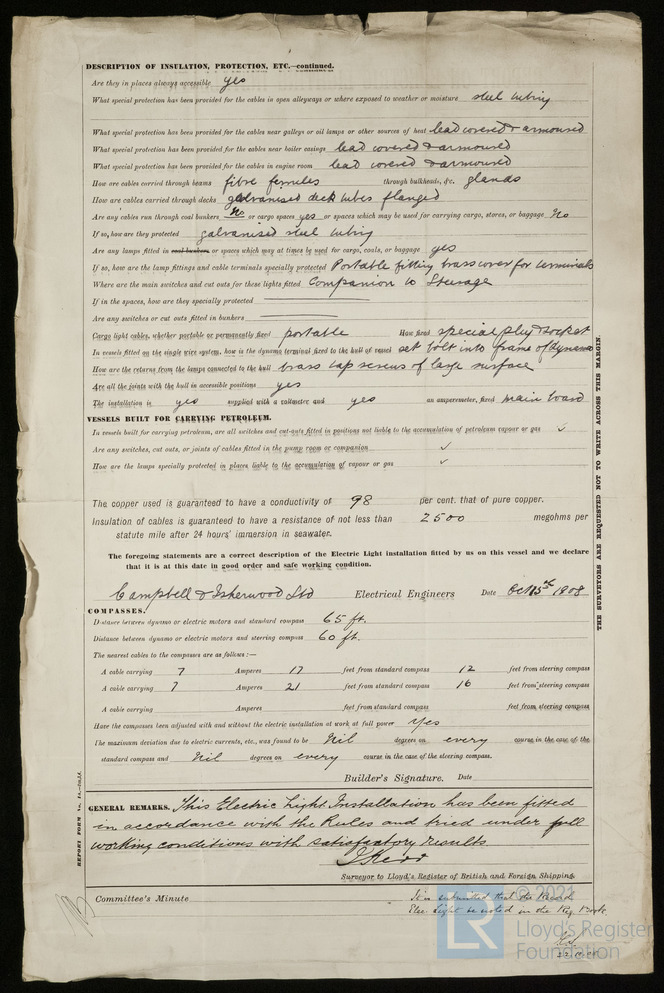 DESCRIPTION OF INSULATION, PROTECTION, ETC.—continued.
Are they in places always accessible yes
What special protection has been provided for the cables in open alleyways or where exposed to weather or moisture steel tubing
What special protection has been provided for the cables near galleys or oil lamps or other sources of heat lead covered & armoured
What special protection has been provided for the cables near boiler casings lead covered & armoured
What special protection has been provided for the cables in engine room lead covered & armoured
How are cables carried through beams fibre ferrules through bulkheads, &c. glands
How are cables carried through decks galvanised deck tubes flanged
Are any cables run through coal bunkers No or cargo spaces yes or spaces which may be used for carrying cargo, stores, or baggage No
If so, how are they protected galvanised steel tubing
Are any lamps fitted in coal bunkers or spaces which may at times be used for cargo, coals, or baggage yes
If so, how are the lamp fittings and cable terminals specially protected Portable fitting brass cover for terminals
Where are the main switches and cut outs for these lights fitted Companion to Steerage
If in the spaces, how are they specially protected
Are any switches or cut outs fitted in bunkers
Cargo light cables, whether portable or permanently fixed portable How fixed special plug & socket
In vessels fitted on the single wire system, how is the dynamo terminal fixed to the hull of vessel set bolt into frame of dynamo
How are the returns from the lamps connected to the hull brass tap screws of large surface
Are all the joints with the hull in accessible positions yes
The installation is yes supplied with a voltmeter and yes an amperemeter, fixed main board
VESSELS BUILT FOR CARRYING PETROLEUM.
In vessels built for carrying petroleum, are all switches and cut-outs fitted in positions not liable to the accumulation of petroleum vapour or gas ✓
Are any switches, cut outs, or joints of cables fitted in the pump room or companion ✓
How are the lamps specially protected in places liable to the accumulation of vapour or gas ✓
The copper used is guaranteed to have a conductivity of 98 per cent. that of pure copper.
Insulation of cables is guaranteed to have a resistance of not less than 2500 megohms per
statute mile after 24 hours' immersion in seawater.
The foregoing statements are a correct description of the Electric Light installation fitted by us on this vessel and we declare
that it is at this date in good order and safe working condition.
Campbell & Isherwood Ltd Electrical Engineers Date Oct 15th 1908
COMPASSES.
Distance between dynamo or electric motors and standard compass 65 ft.
Distance between dynamo or electric motors and steering compass 60 ft.
The nearest cables to the compasses are as follows:—
A cable carrying 7 Amperes 17 feet from standard compass 12 feet from steering compass
A cable carrying 7 Amperes 21 feet from standard compass 16 feet from steering compass
A cable carrying Amperes feet from standard compass feet from steering compass
Have the compasses been adjusted with and without the electric installation at work at full power Yes
The maximum deviation due to electric currents, etc., was found to be Nil degrees on every course in the case of the
standard compass and Nil degrees on every course in the case of the steering compass.
Builder's Signature. Date
GENERAL REMARKS. This Electric Light Installation has been fitted
in accordance with the Rules and tried under full
working conditions with satisfactory results.
Surveyor to Lloyd's Register of British and Foreign Shipping.
Committee's Minute
It is submitted that the Record
Elec Light be noted in the Reg. Book.
THE SURVEYORS ARE REQUESTED NOT TO WRITE ACROSS THIS MARGIN.
REPORT FORM No. 13.
© 2021
LR
Lloyd's Register
Foundation